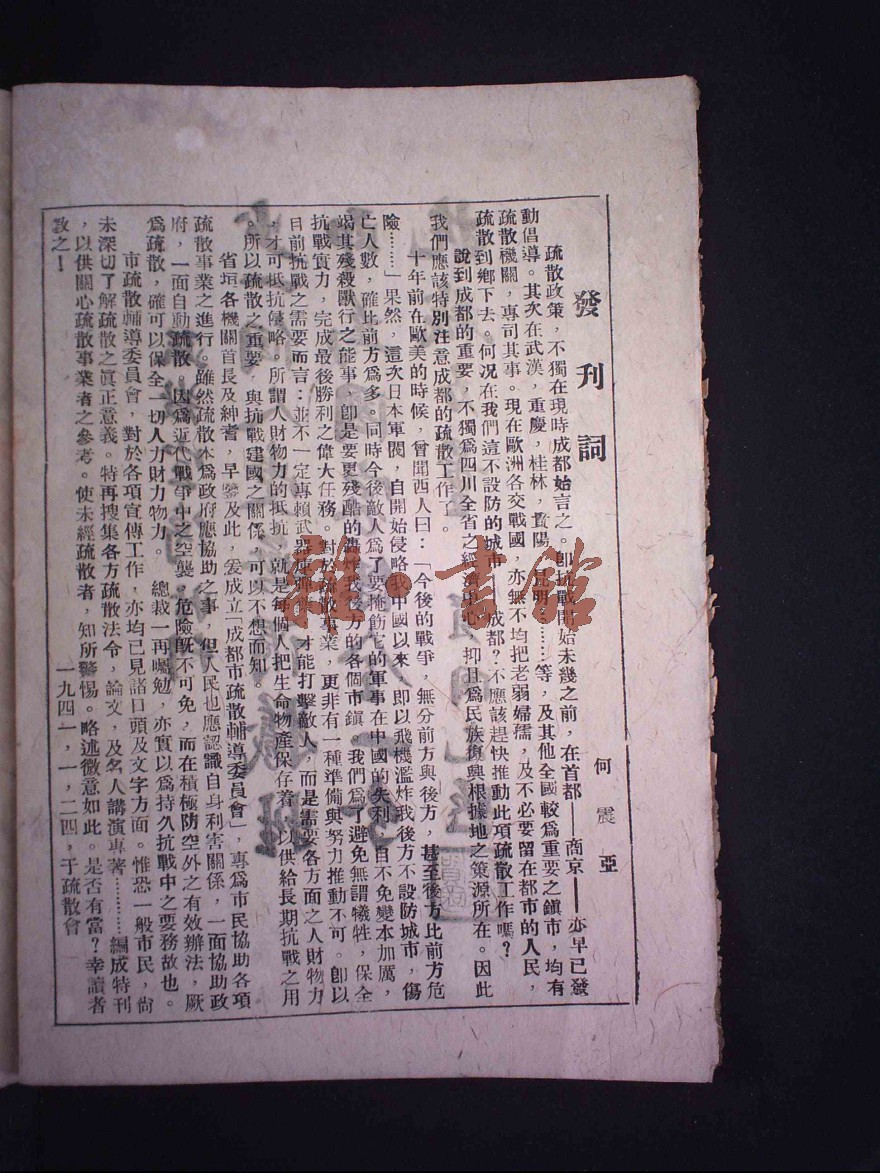 發刊詞
何震亞
疏散政策，不獨在現時成都始言之。卽抗戰開始未幾之前，在首都——南京——亦早已發
動倡導。其次在武漢，重慶，桂林，貴陽，昆明………等，及其他全國較爲重要之鎮市，均有
疏散機關，專司其事。現在歐洲各交戰國，亦無不均把老弱婦孺，及不必要留在都市的人民，
疏散到鄉下去。何况在我們這不設防的城市——成都？不應該趕快推動此項疏散工作嗎？
說到成都的重要，不獨爲四川全省之經濟中心，抑且爲民族復興根據地之策源所在。因此
我們應該特別注意成都的疏散工作了。
十年前在歐美的時候，曾聞西人曰：「今後的戰爭，無分前方與後方，甚至後方比前方危
險………」果然，這次日本軍閥，自開始侵略我中國以來，即以飛機濫炸我後方不設防城市，傷
亡人數，確比前方爲多。同時今後敵人爲了要掩飾它的軍事在中國的失利，自不免變本加厲，
竭其殘殺獸行之能事，卽是要更殘酷的轟炸我後方的各個市鎮。我們爲了避免無謂犧牲，保全
抗戰實力，完成最後勝利之偉大任務。對於疏散事業，更非有一種準備與努力推動不可。卽以
目前抗戰之需要而言：並不一定專賴武器使彈藥，才能打擊敵人，而是需要各方面之人財物力
，才可抵抗侵略。所謂人財物力的抵抗，就是每個人把生命物產保存着，以供給長期抗戰之用
。所以疏散之重要，與抗戰建國之關係，可以不想而知。
省垣各機關首長及紳耆，早鑒及此，爰成立「成都市疏散輔導委員會」，專爲市民協助各項
疏散事業之進行。雖然疏散本爲政府應協助之事，但人民也應認識自身利害關係，一面協助政
府，一面自動疏散，因爲近代戰爭中之空襲，危險既不可免，而在積極防空外之有效辦法，厥
爲疏散，確可以保全一切人力財力物力。　總裁一再囑勉，亦實以爲持久抗戰中之要務故也。
市疏散輔導委員會，對於各項宣傳工作，亦均已見諸口頭及文字方面。惟恐一般市民，尙
未深切了解疏散之眞正意義。特再搜集各方疏散法令，論文，及名人講演專著…………編成特刊
，以供關心疏散事業者之參考。使未經疏散者，知所警惕。略述微意如此。是否有當？幸讀者
敎之！
一九四一，一，二四，于疏散會
雜·書館